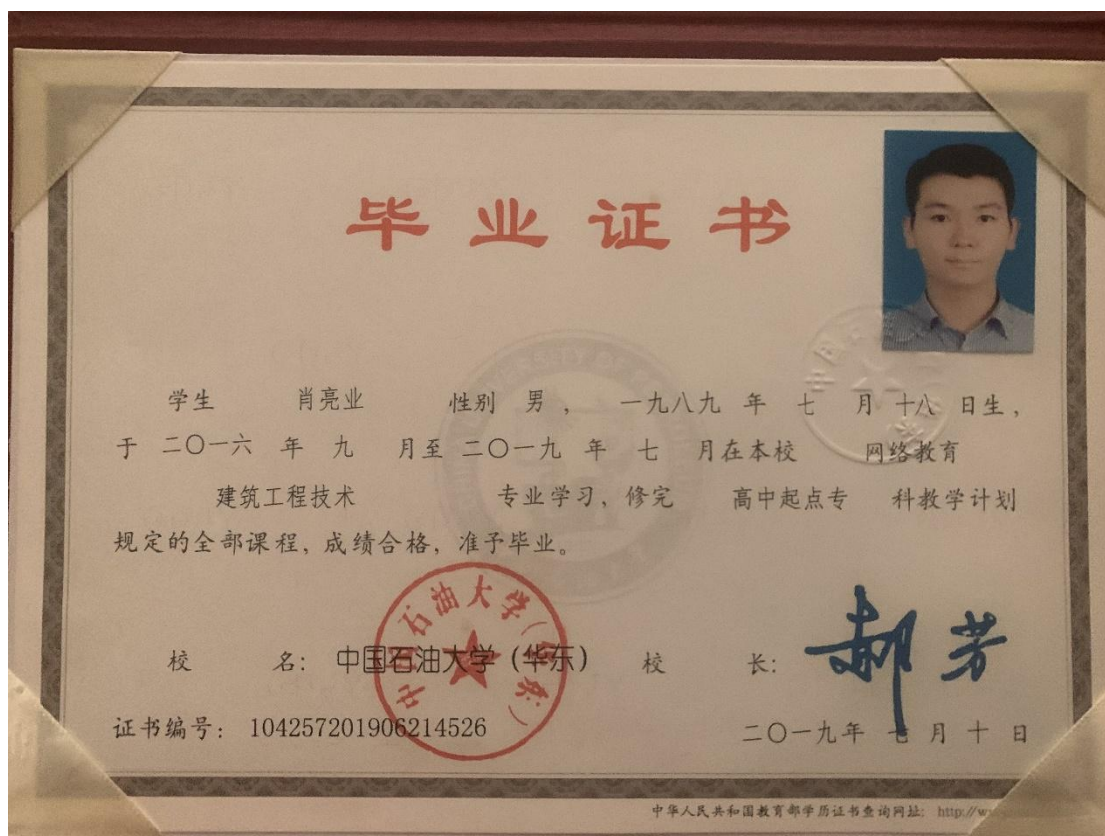 毕业证书
学生 肖亮业 性别 男 , 一九八九 年 七 月 十八 日生，
于 二〇一六 年 九 月至 二〇一九 年 七 月在本校 网络教育
建筑工程技术 专业学习，修完 高中起点专 科教学计划
规定的全部课程，成绩合格，准予毕业。
中国石油大学(华东)
校 名： 中国石油大学（华东） 校 长： 郝芳
证书编号： 104257201906214526 二〇一九年 七 月 十 日
中华人民共和国教育部学历证书查询网址： http://w